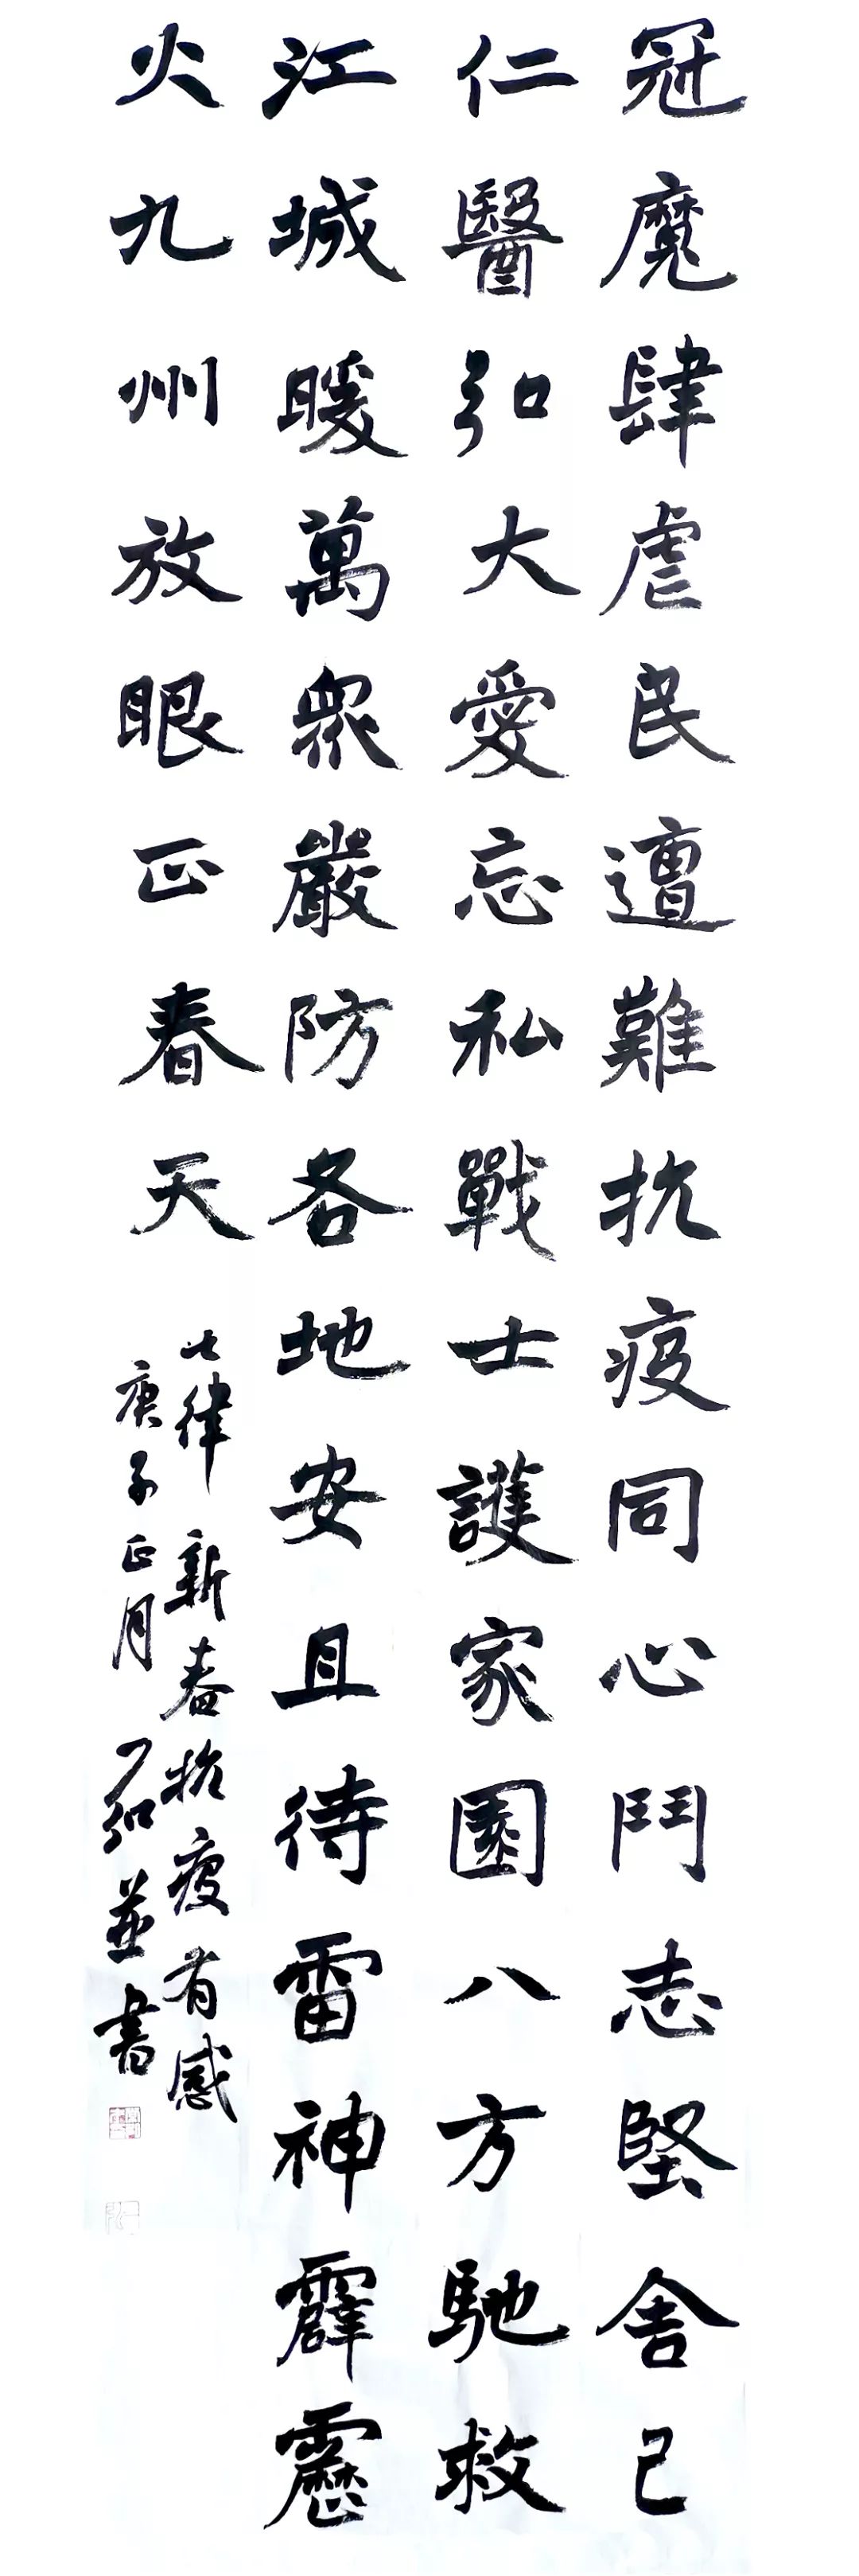 冠魔肆虐民遭難抗疫同心鬥志堅舍己
仁醫弘大愛忘私戰士護家園八方馳救
江城暖萬衆嚴防各地安且待雷神霹靂
火九州放眼正春天
七律 新春抗疫有感
庚子正月 弘並書